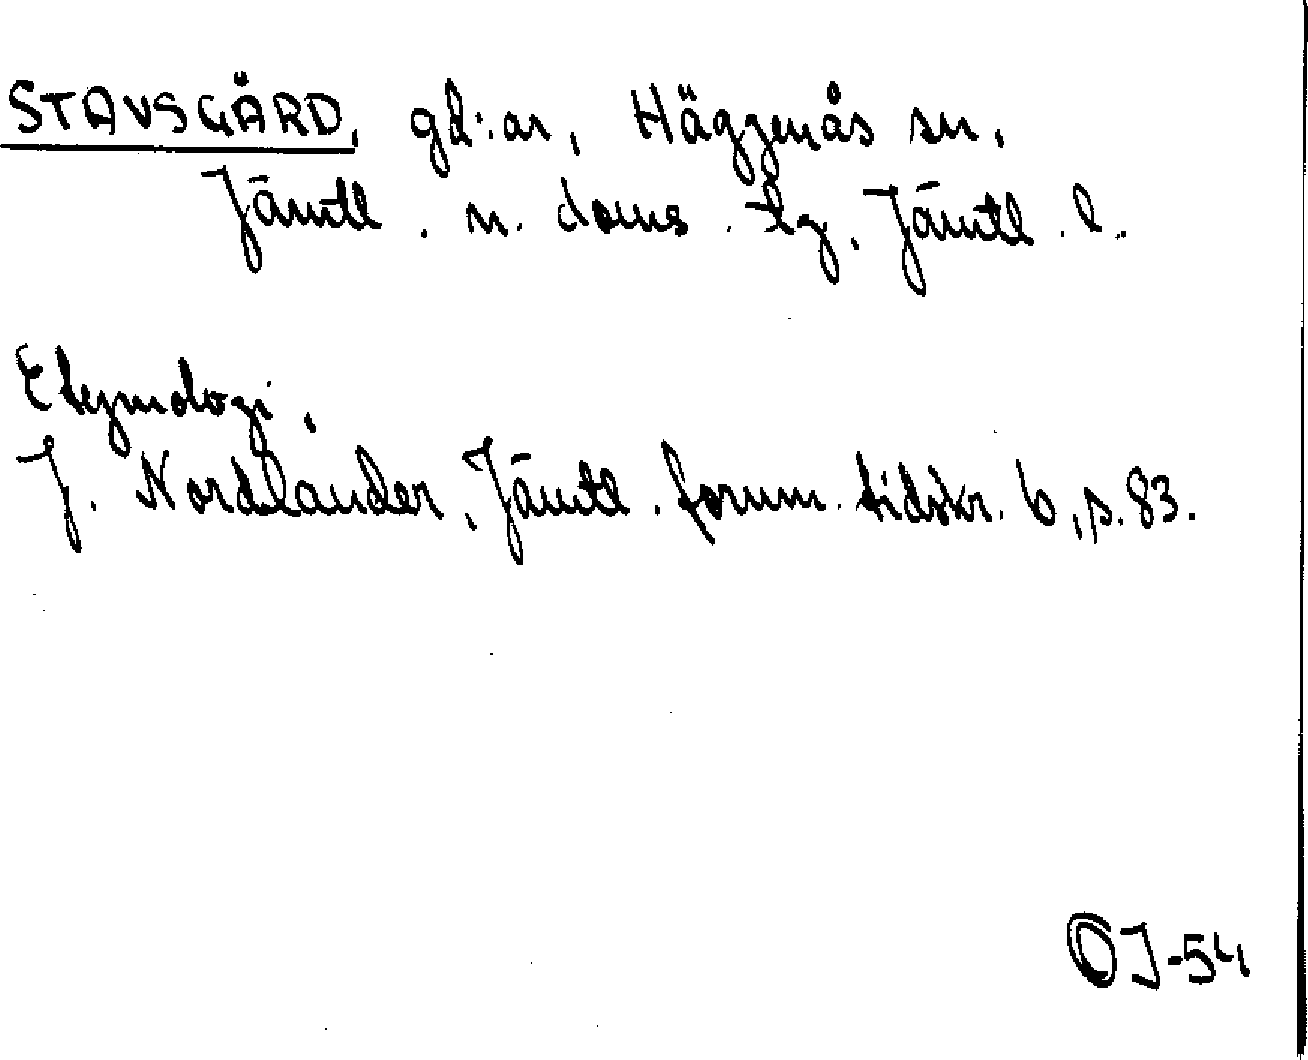 STAVSGÄRD, gd:ar, Häggenås sn.
Jämtl. n. doms. tg, Jämtl. l.
Etymologi.
J. Nordlander, Jämtl. fornm. tidskr. 6, s. 83.
OJ-54